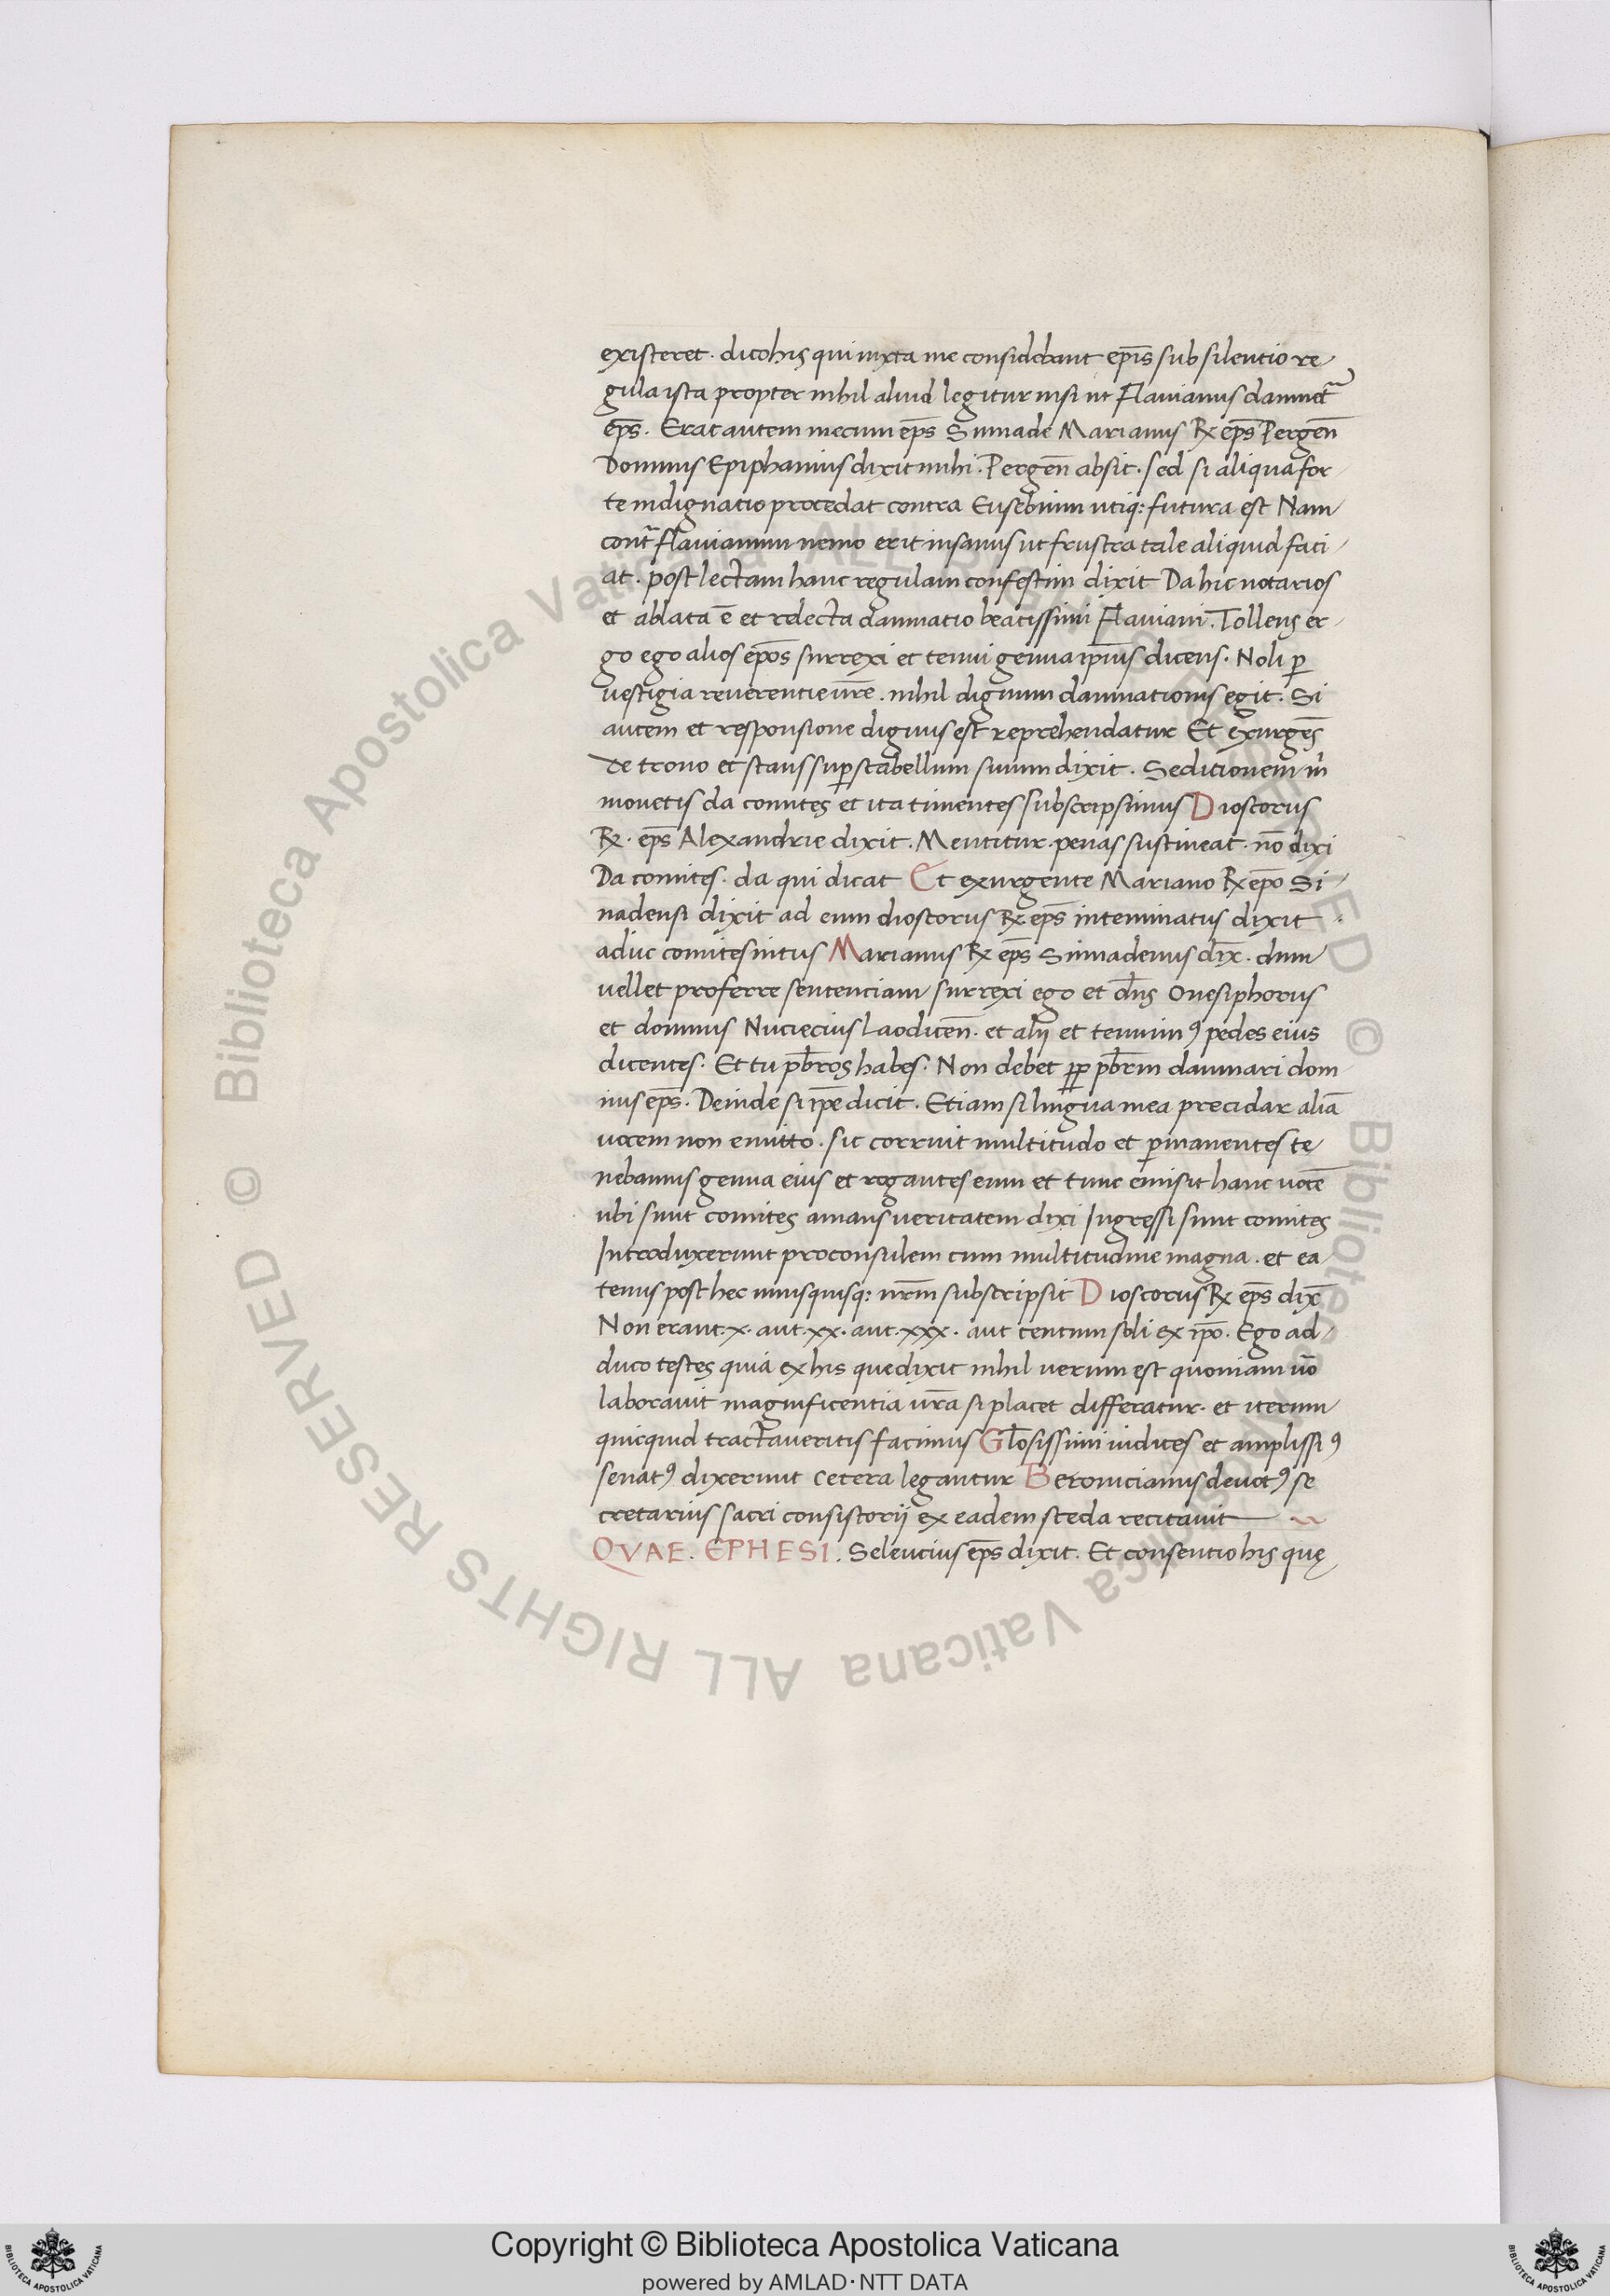 existeret. dico his qui iuxta me considebant ep̄is sub silentio re
gula ista propter nihil aliud legitur nisi ut Flauianus damnet᷑
ep̄s. Erat autem mecum ep̄s Sinnade Marianus R̷ ep̄s Pergeñ
Domnus Epiphanius dixit mihi. Pergeñ absit. sed si aliqua for
te indignatio procedat contra Eusebium utiq: futura est Nam
cont᷑ Flauianum nemo erit insanus ut frustra tale aliquid faci
at. post lectam hanc regulam confestim dixit Da hic notarios
et ablata ē et relecta damnatio beatissimi Flauiani. Tollens er
go ego alios ep̄os surrexi et tenui genua ip̄ius dicens. Noli ꝑ
uestigia reuerentie ur̄e. nihil dignum damnationis egit. Si
autem et responsione dignus est reprehendatur Et exurgēs
de trono et stans suꝑ stabellum suum dixit. Seditionem m̄
mouetis da comites et ita timentes subscripsimus Dioscorus
R̷. ep̄s Alexandrie dixit. Mentitur. penas sustineat. nō dixi
Da comites. da qui dicat Et exurgente Mariano R̷ ep̄o Si
nadensi dixit ad eum dioscorus R̷ ep̄s inteminatus dixit
aduc comites intus Marianus R̷ ep̄s Sinnadenus dix̄. dum
uellet proferre sentenciam surrexi ego et dn̄s Onesiphorus
et domnus Nuciecius Laodiceñ. et alij et tenuimꝰ pedes eius
dicentes. Et tu pb̄ros habes. Non debet ꝓp pb̄rm damnari dom
nus ep̄s. Deinde si ip̄e dicit. Etiam si lingua mea precidar aliā
uocem non emitto. sic corruit multitudo et ꝑmanentes te
nebamus genua eius et rogantes eum et tunc emisit hanc uocē
ubi sunt comites amans ueritatem dixi Ingressi sunt comites
Introduxerunt proconsulem cum multitudine magna. et ea
tenus post hec unusquisq: nr̄m subscripsit Dioscorus R̷ ep̄s dix̄
Non erant. x. aut. xx. aut. xxx. aut centum soli ex ip̄o. Ego ad
duco testes quia ex his que dixit nihil uerum est quoniam ūo
laborauit magnificentia ur̄a si placet differatur. et iterum
quicquid tractaueritis facimus Gl̄osissimi iudices et amplissiꝰ
senatꝰ dixerunt cetera legantur Beronicianus deuotꝰ se
cretarius sacri consistorij ex eadem sceda recitauit
QVAE. EPHESI. Seleucius ep̄s dixit. Et consentio his quę
© Biblioteca Apostolica Vaticana ALL RIGHTS RESERVED © Biblioteca Apostolica Vaticana ALL RIGHTS RESERVED
Copyright © Biblioteca Apostolica Vaticana
powered by AMLAD·NTT DATA
BIBLIOTECA APOSTOLICA VATICANA
BIBLIOTECA APOSTOLICA VATICANA